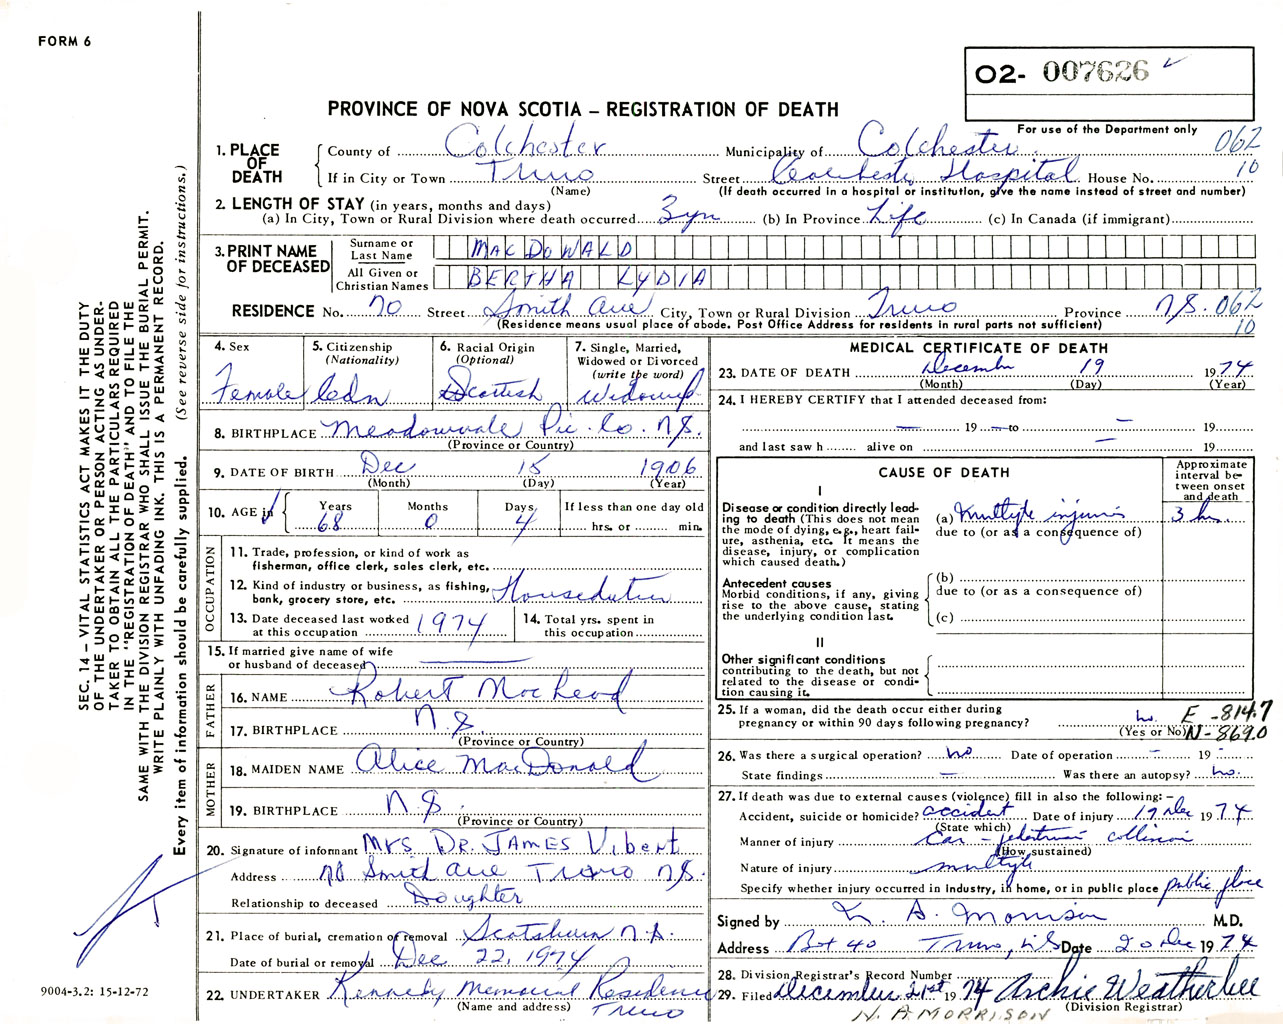 FORM 6
O2- 007626
PROVINCE OF NOVA SCOTIA – REGISTRATION OF DEATH
For use of the Department only
1. PLACE OF DEATH
County of Colchester Municipality of Colchester 062
If in City or Town Truro Street Colchester Hospital House No. 10
(Name) (If death occurred in a hospital or institution, give the name instead of street and number)
2. LENGTH OF STAY (in years, months and days)
(a) In City, Town or Rural Division where death occurred 3 yrs (b) In Province Life (c) In Canada (if immigrant)
3. PRINT NAME OF DECEASED
Surname or Last Name MACDONALD
All Given or Christian Names BERTHA LYDIA
RESIDENCE No. 70 Street Smith Ave City, Town or Rural Division Truro Province N.S. 062
(Residence means usual place of abode. Post Office Address for residents in rural parts not sufficient) 10
4. Sex Female
5. Citizenship (Nationality) Cdn
6. Racial Origin (Optional) Scottish
7. Single, Married, Widowed or Divorced (write the word) Widowed
8. BIRTHPLACE Meadowvale Pic. Co. N.S.
(Province or Country)
9. DATE OF BIRTH Dec 15 1906
(Month) (Day) (Year)
10. AGE in Years 68 Months 0 Days 4 If less than one day old
hrs. or min.
OCCUPATION
11. Trade, profession, or kind of work as
fisherman, office clerk, sales clerk, etc.
12. Kind of industry or business, as fishing,
bank, grocery store, etc. Houseduties
13. Date deceased last worked
at this occupation 1974
14. Total yrs. spent in
this occupation
15. If married give name of wife
or husband of deceased
FATHER
16. NAME Robert MacLeod
17. BIRTHPLACE N.S.
(Province or Country)
MOTHER
18. MAIDEN NAME Alice MacDonald
19. BIRTHPLACE N.S.
(Province or Country)
20. Signature of informant Mrs. DR. JAMES Vibert
Address 70 Smith Ave Truro N.S.
Relationship to deceased Daughter
21. Place of burial, cremation or removal Scotsburn N.S.
Date of burial or removal Dec 22, 1974
22. UNDERTAKER Kennedy Memorial Residence
(Name and address) Truro
MEDICAL CERTIFICATE OF DEATH
23. DATE OF DEATH December 19 1974
(Month) (Day) (Year)
24. I HEREBY CERTIFY that I attended deceased from:
— 19 — to — 19
and last saw h alive on — 19
CAUSE OF DEATH
Approximate interval between onset and death
I
Disease or condition directly lead-
ing to death (This does not mean
the mode of dying, e.g., heart fail-
ure, asthenia, etc. It means the
disease, injury, or complication
which caused death.)
(a) Multiple injuries 3 hrs.
due to (or as a consequence of)
Antecedent causes
Morbid conditions, if any, giving
rise to the above cause, stating
the underlying condition last.
(b)
due to (or as a consequence of)
(c)
II
Other significant conditions
contributing to the death, but not
related to the disease or condi-
tion causing it.
25. If a woman, did the death occur either during
pregnancy or within 90 days following pregnancy? no.
(Yes or No)
E -814.7
N-869.0
26. Was there a surgical operation? no Date of operation — 19 -
State findings — Was there an autopsy? no.
27. If death was due to external causes (violence) fill in also the following: –
Accident, suicide or homicide? accident Date of injury 19 Dec 1974
(State which)
Manner of injury car - pedestrian collision
(How sustained)
Nature of injury multiple
Specify whether injury occurred in industry, in home, or in public place public place
Signed by N. A. Morrison M.D.
Address Box 40 Truro, NS Date 20 Dec 1974
28. Division Registrar's Record Number
29. Filed December 21st 1974 Archie Weatherbee
(Division Registrar)
N. A MORRISON
SEC. 14 – VITAL STATISTICS ACT MAKES IT THE DUTY
OF THE UNDERTAKER OR PERSON ACTING AS UNDER-
TAKER TO OBTAIN ALL THE PARTICULARS REQUIRED
IN THE "REGISTRATION OF DEATH" AND TO FILE THE
SAME WITH THE DIVISION REGISTRAR WHO SHALL ISSUE THE BURIAL PERMIT.
WRITE PLAINLY WITH UNFADING INK. THIS IS A PERMANENT RECORD.
Every item of information should be carefully supplied. (See reverse side for instructions.)
9004-3.2: 15-12-72